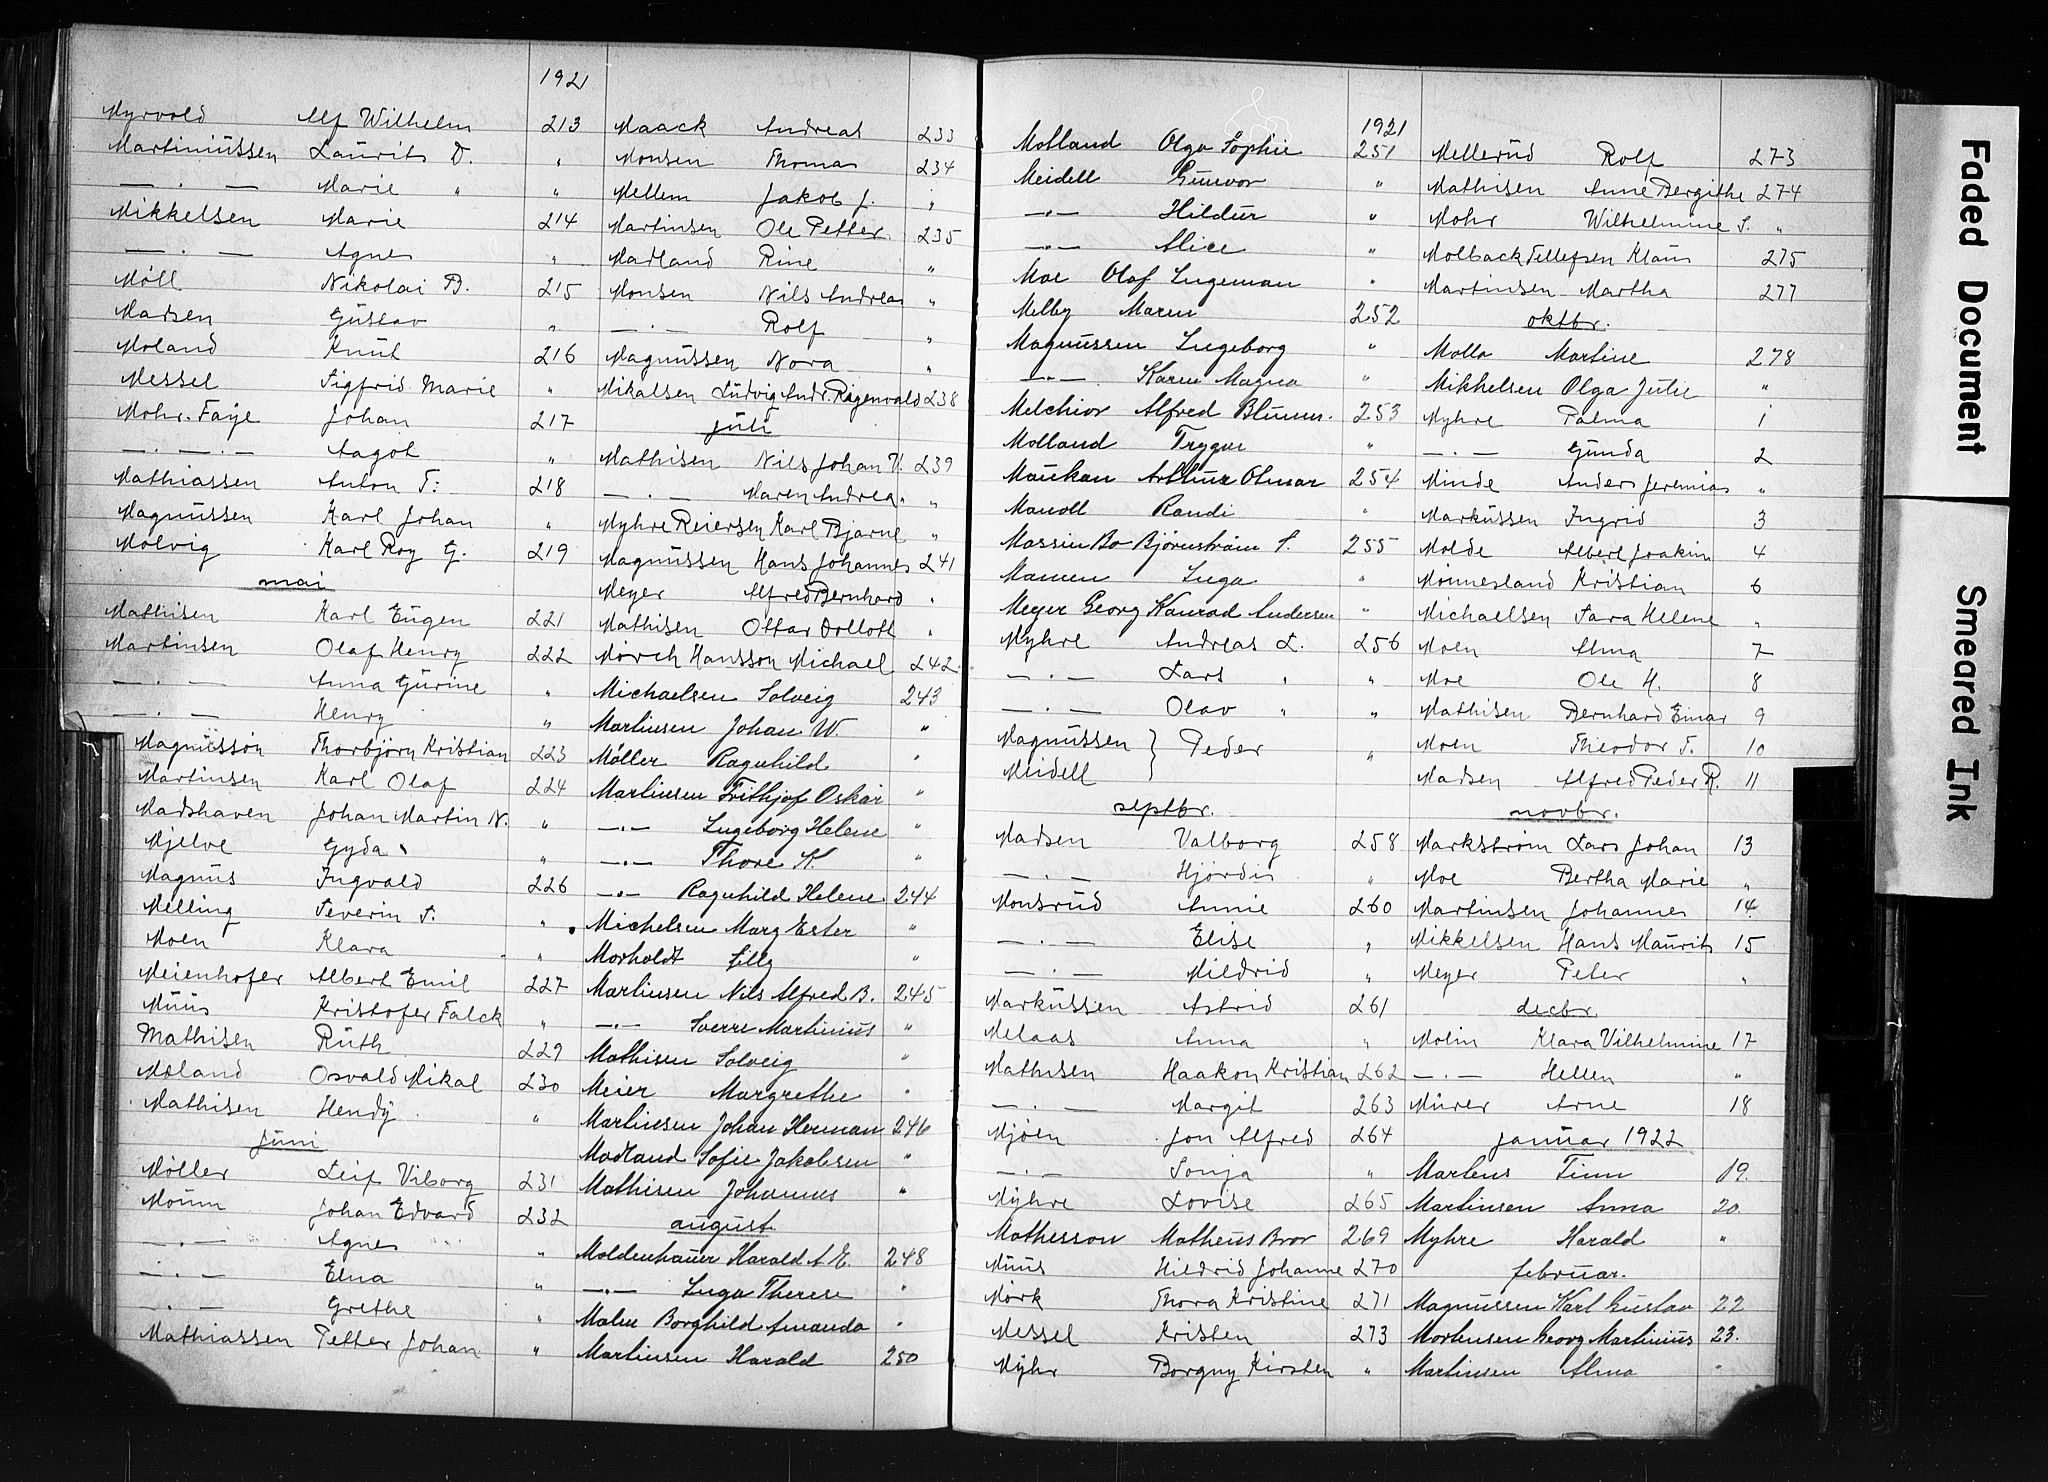 1921
Myrvold Alf Wilhelm 213
Martiniussen Laurits D. "
— . — Marie " "
Mikkelsen Marie 214
— . — Agnes "
Møll Nikolai B. 215
Madsen Gustav "
Moland Knut 216
Messel Sigfrid Marie "
Mohr-Faye Johan 217
— . — . — Aagot "
Mathiassen Anton T: 218
Magnussen Karl Johan "
Molvig Karl Roy G. 219
mai
Mathisen Karl Eugen 221
Martinsen Olaf Henry 222
— . — Anna Gurine "
— . — Henry "
Magnusson Thorbjørn Kristian 223
Martinsen Karl Olaf 224
Madshaven Johan Martin N. "
Mjelve Gyda "
Magnus Ingvald 226
Melling Severin S. "
Moen Klara "
Meienhofer Albert Emil 227
Muus Kristofer Falck "
Mathisen Ruth 229
Moland Osvald Mikal 230
Mathisen Hendy "
juni
Møller Leif Viborg 231
Moum Johan Edvard 232
— . — Agnes "
— . — Elna "
— . — Grethe "
Mathiassen Petter Johan "
Maack Andreas 233
Monsen Thomas 234
Mellem Jakob J. "
Martinsen Ole Petter 235
Madland Rine "
Monsen Nils Andreas "
— . — Rolf "
Magnussen Nora "
Mikalsen Ludvig Andr. Ragenvald 238
juli
Mathisen Nils Johan V. 239
— . — Maren Andrea "
Myhre Reiersen Karl Bjarne "
Magnussen Hans Johannes 241
Meyer Alfred Bernhard "
Mathisen Ottar Dollott "
Mørch Hansson Michael 242
Michaelsen Solveig 243
Martinsen Johan W. "
Møller Ragnhild "
Martinsen Frithjof Oskar "
— . — Ingeborg Helene "
— . — Thore K "
— . — Ragnhild Helene 244
Michelsen Marg Ester "
Morholdt Lilly "
Martinsen Nils Alfred B. 245
— . — Sverre Martinius "
Mathisen Solveig "
Meier Margrethe "
Martinesen Johan Herman 246
Madland Sofie Jakobsen "
Mathisen Johannes "
august
Moldenhauer Harald A. E. 248
— . — Inga Therese "
Malm Borghild Amanda "
Martinsen Harald 250
1921
Molland Olga Sophie 251
Meidell Gunvor "
— . — Hildur "
— . — Alice "
Moe Olaf Ingeman "
Melby Maren 252
Magnussen Ingeborg "
— . — Karen Magna "
Melchior Alfred Blumer. 253
Molland Trygve "
Maukan Arthur Otmar 254
Mandt Randi "
Massin Bo Björnström S. 255
Mamen Inga "
Meyer Georg Konrad Andersen "
Myhre Andreas L. 256
— . — Lars " "
— . — Olav " "
Magnussen } Peder "
Meidell
septbr.
Madsen Valborg 258
— . — Hjørdis "
Monsrud Annie 260
— . — Elise "
— . — Mildrid "
Markussen Astrid 261
Melaas Anna "
Mathisen Haakon Kristian 262
— . — Margit 263
Mjøen Jon Alfred 264
— . — Sonja "
Myhre Lovise 265
Mathesson Matheus Bror 269
Muus Hildrid Johanne 270
Mørk Thora Kristine 271
Messel Kristen 273
Myhr Borgny Kirsten "
Mellerud Rolf 273
Mathisen Anne Bergithe 274
Mohr Wilhelmine S. "
Molback Tellefsen Klaus 275
Martinsen Martha 277
oktbr.
Molla Martine 278
Mikkelsen Olga Julie "
Myhre Palma 1
— . — Gunda 2
Minde Anders Jeremias "
Markussen Ingrid 3
Molde Albert Joakim 4
Mønnesland Kristian 6
Michaelsen Sara Helene "
Moen Alma 7
Moe Ole H. 8
Mathisen Bernhard Einar 9
Moen Theodor T. 10
Madsen Alfred Peder R. 11
novbr.
Markstrøm Lars Johan 13
Moe Bertha Marie "
Martinsen Johannes 14
Mikkelsen Hans Maurits 15
Meyer Peter "
decbr.
Molin Klara Vilhelmine 17
— . — Hellen "
Murer Arne 18
januar 1922
Martens Finn 19.
Martinsen Anna 20.
Myhre Harald "
februar.
Magnussen Karl Gustav 22
Mortensen Georg Martinius 23.
Martinsen Alma "
Faded Document
Smeared Ink